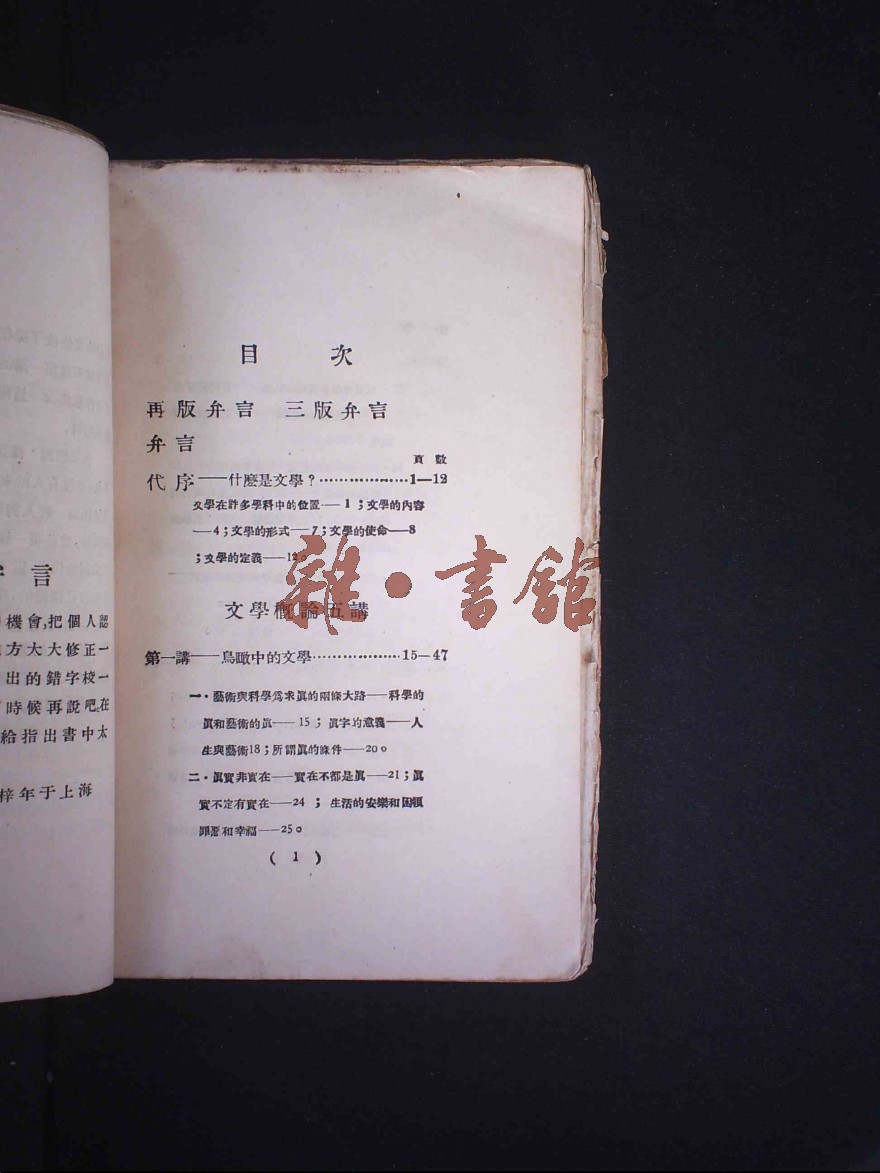 弁言
機會,把個人認
方大大修正一
出的錯字校一
時候再說吧在
給指出書中太
梓年于上海
目 次
再版弁言 三版弁言
弁言
頁數
代序——什麼是文學?··················1—12
文學在許多學科中的位置——1;文學的內容
——4;文學的形式——7;文學的使命——8
;文學的定義——12。
雜·書館
文學概論五講
第一講——鳥瞰中的文學··················15—47
一·藝術與科學爲求眞的兩條大路——科學的
眞和藝術的眞——15;眞字的意義——人
生與藝術18;所謂眞的條件——20。
二·眞實非實在——實在不都是眞——21;眞
實不定有實在——24;生活的安樂和困頓
罪惡和幸福——25。
(1)